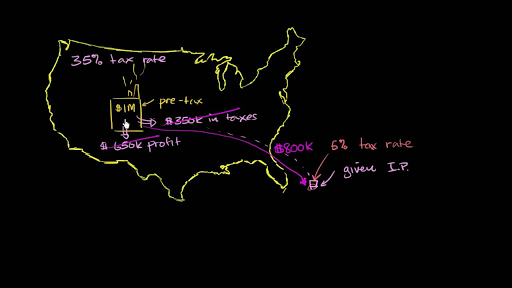 35% tax rate
$1M
pre-tax
$350k in taxes
$650k profit
$800k
5% tax rate
given I.P.